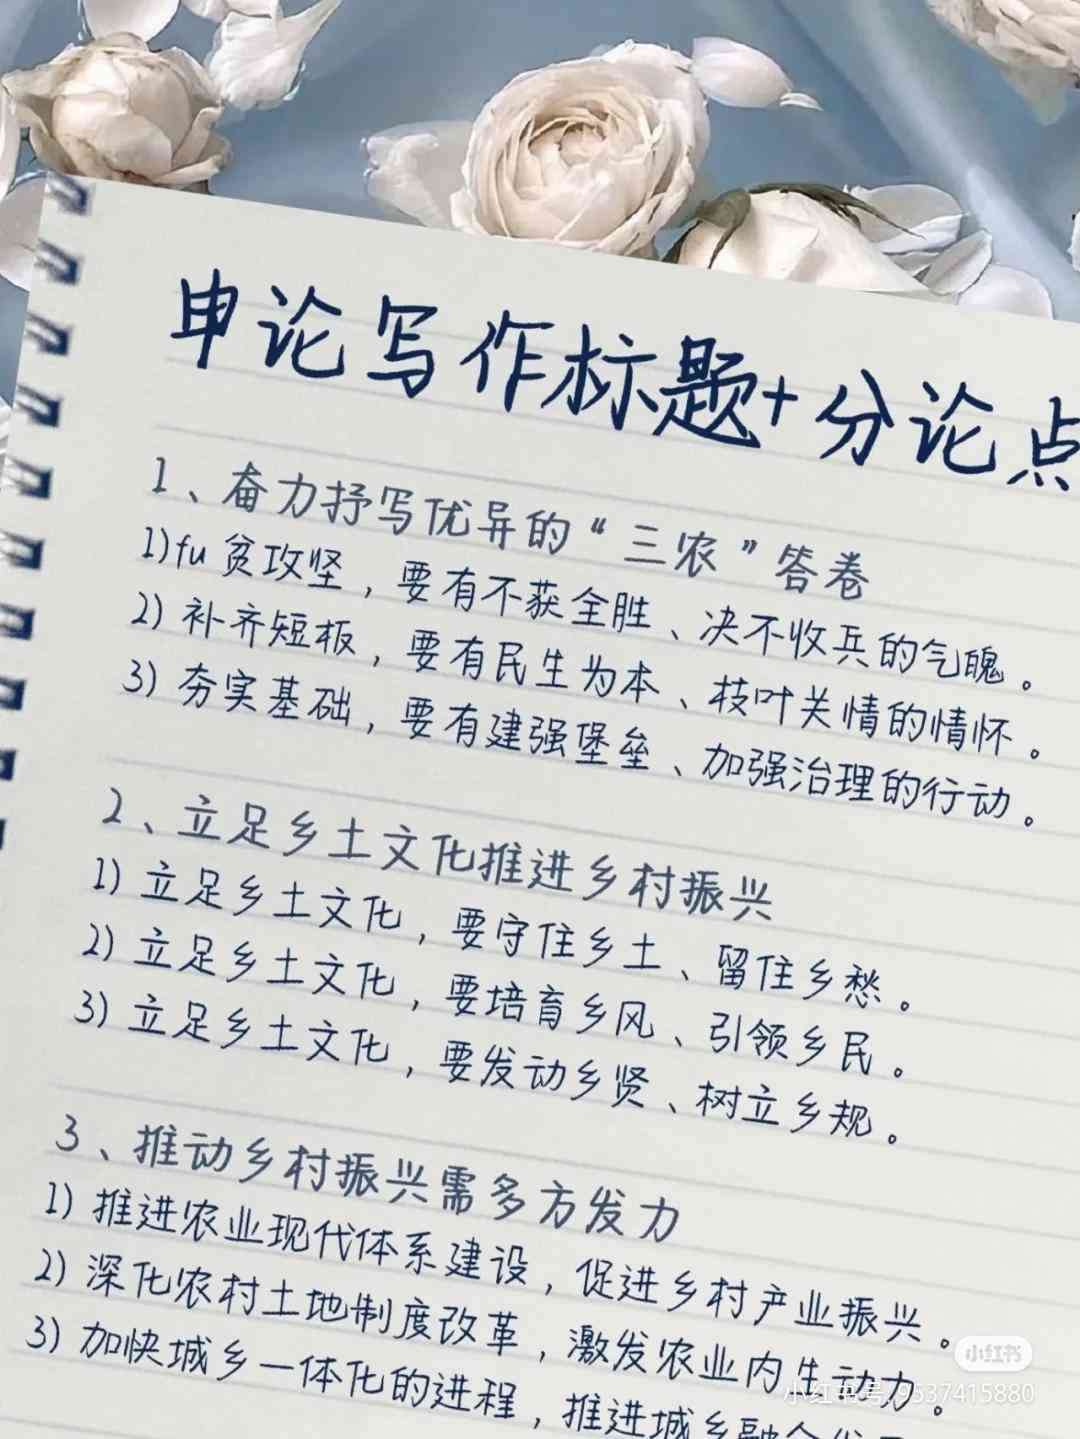 申论写作标题+分论点
1、奋力抒写优异的“三农”答卷
1)fu贫攻坚，要有不获全胜、决不收兵的气魄。
2)补齐短板，要有民生为本、枝叶关情的情怀。
3)夯实基础，要有建强堡垒、加强治理的行动。
2、立足乡土文化推进乡村振兴
1)立足乡土文化，要守住乡土、留住乡愁。
2)立足乡土文化，要培育乡风、引领乡民。
3)立足乡土文化，要发动乡贤、树立乡规。
3、推动乡村振兴需多方发力
1)推进农业现代体系建设，促进乡村产业振兴。
2)深化农村土地制度改革，激发农业内生动力。
3)加快城乡一体化的进程，推进城乡融合
小红书
小红书号：9537415880